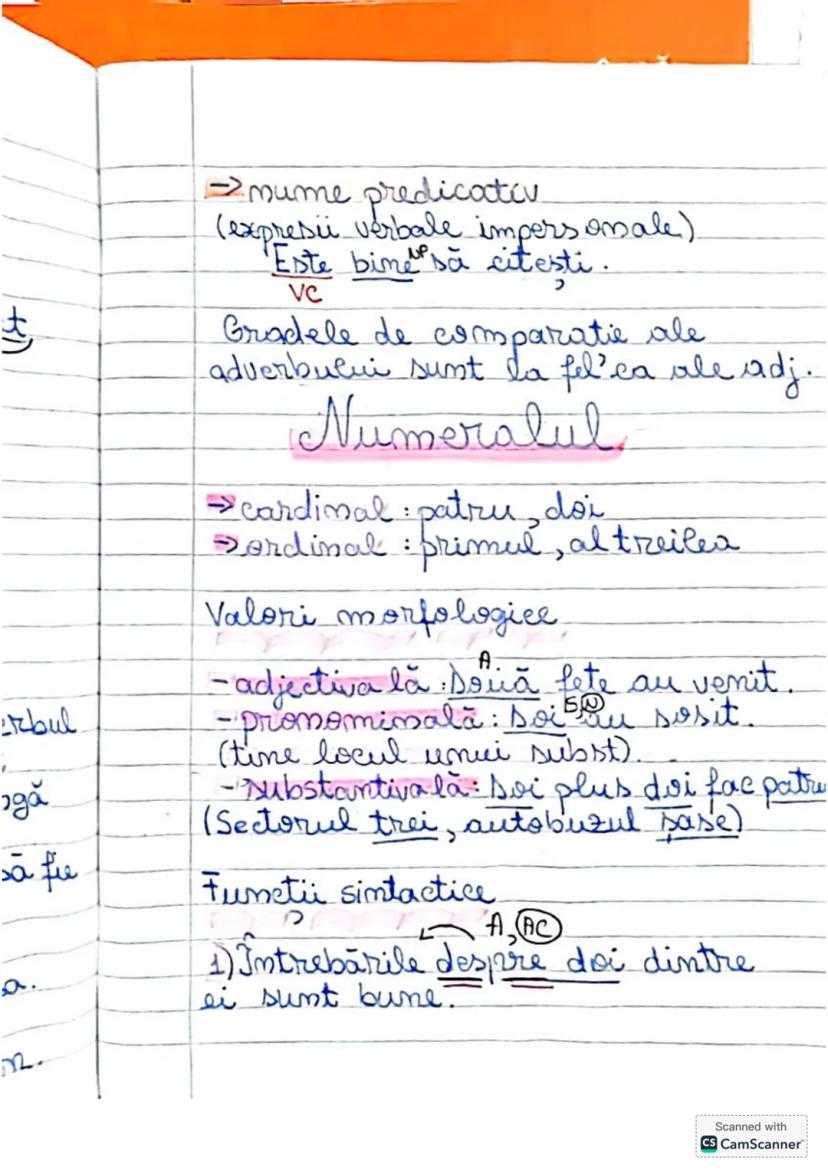 → nume predicativ
(expresii verbale impersonale)
Este bine NP să citești.
VC
Gradele de comparație ale
adverbului sunt la fel ca ale adj.
Numeralul
→ cardinal : patru, doi
→ ordinal : primul, al treilea
Valori morfologice
A
- adjectivală : Două fete au venit.
- pronominală : Doi S,N au sosit.
(ține locul unui subst).
- substantivală : Doi plus doi fac patru
(Sectorul trei, autobuzul șase)
Funcții sintactice
A, AC
1) Întrebările despre doi dintre
ei sunt bune.
t
erbul
ogă
să fie
a.
m.
Scanned with
CS CamScanner